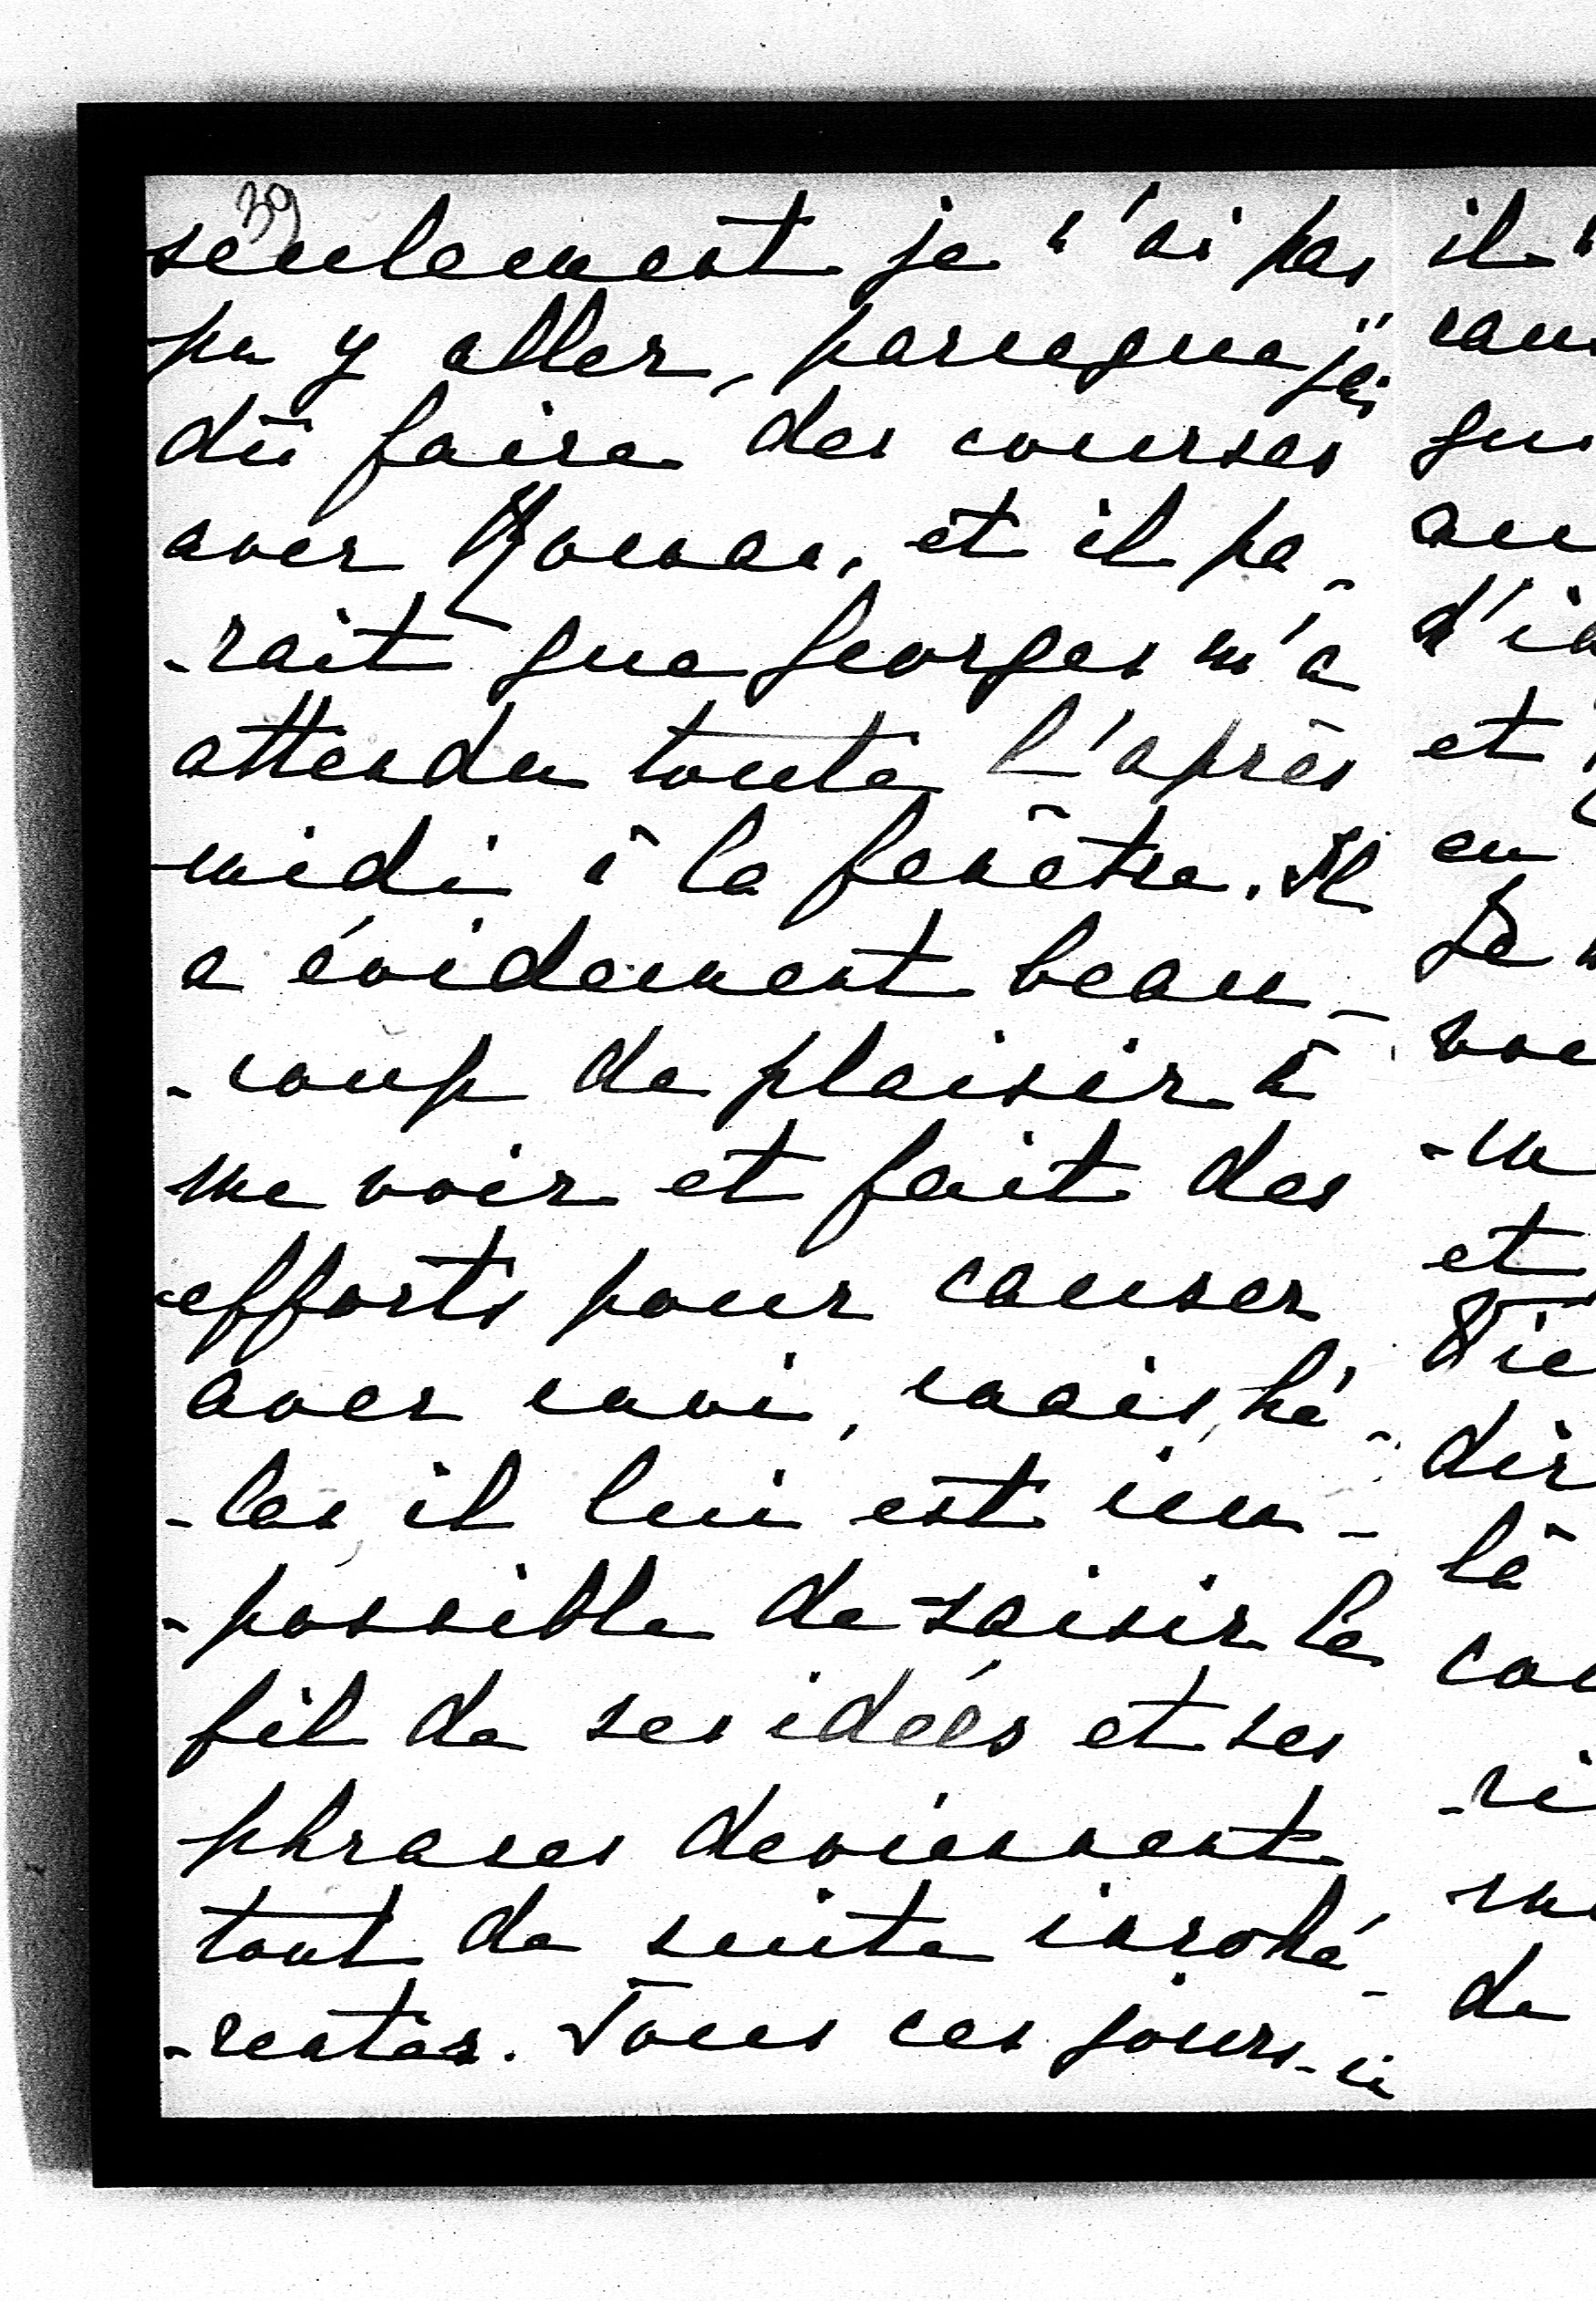 39
seulement je n'ai pas
pu y aller, parceque j'ai
dû faire des courses
avec et il pa-
-rait que Georges m'a
attendu toute l'après
midi à la fenêtre. Il
a évidement beau-
-coup de plaisir à
me voir et fait des
efforts pour causer
avec moi, mais, hé-
-las, il lui est im-
-possible de saisir le
fil de ses idées et ses
phrases deviennent
tout de suite incohé-
-rentes. Tous ces jours-ci
il
qui
d'i
et
en
Le
et
là
de